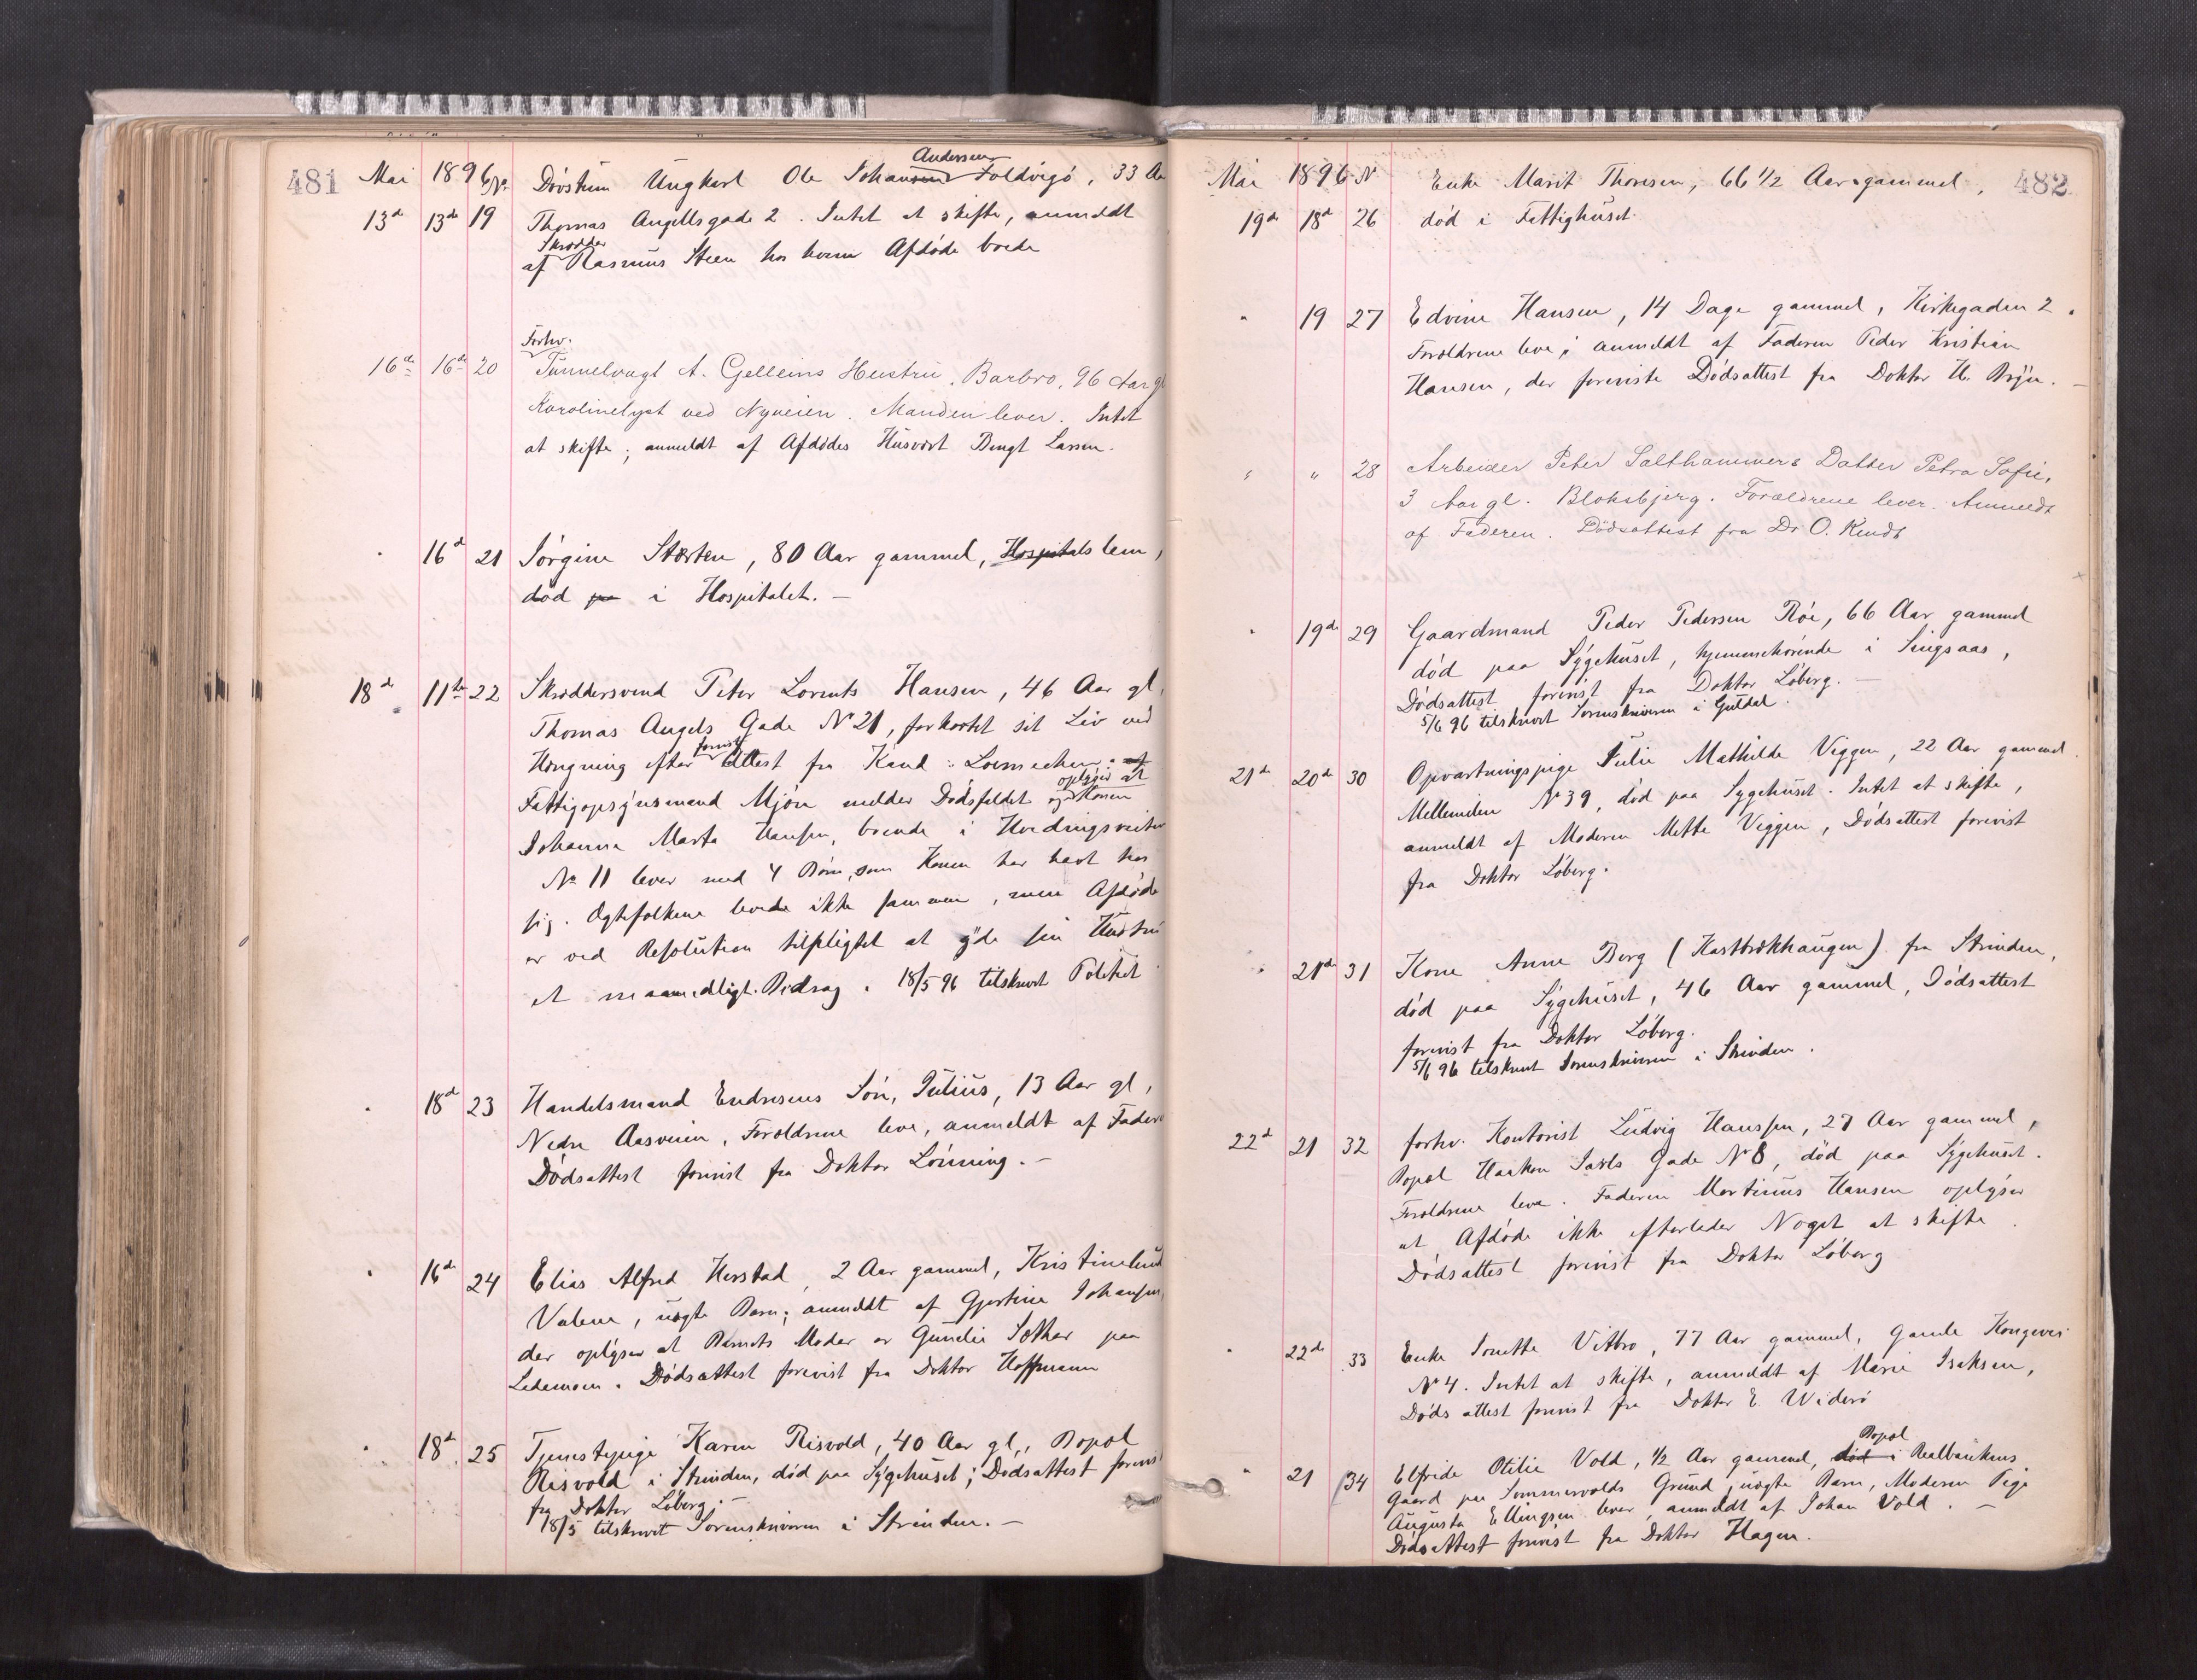 481 Mai 1896 No. Døvstum Ungkarl Ole Johansen Andersen Foldvigø, 33 Aa
13de 13de 19 Thomas Angellsgade 2. Intet at skifte, anmeldt
Skrædder
af Rasmus Steen hos hvem Afdøde boede
Forhv.
16de 16de 20 Tunnelvagt A. Gelleins Hustru, Barbro, 96 Aar gl
Karolinelyst ved Nyveien. Manden lever. Intet
at skifte; anmeldt af Afdødes Husvært Bengt Larsen.
16d 21 Jørgine Størten, 80 Aar gammel, Hospitalslem,
død paa i Hospitalet. —
18de 11te 22 Skræddersvend Peter Lorents Hansen, 46 Aar gl,
Thomas Angels Gade No 21, forkortet sit Liv ved
Hængning efter forevist Attest fra Kand. af
Fattigopsynsmand Mjøen melder Dødsfaldet og oplyser at Konen
Johanna Marta Hansen, boende i Hvedingsveiten
No 11 lever med 4 Børn, som Konen har havt hos
sig. Ægtefolkene levede ikke sammen, men Afdøde
er ved Resolution tilpligtet at yde sin Hustru
et maanedligt Bidrag. 18/5 96 tilskrevet Politiet
18d 23 Handelsmand Endresens Søn, Julius, 13 Aar gl,
Nedre Aasveien, Forældrene leve, anmeldt af Faderen
Dødsattest forevist fra Doktor Lønning. —
16de 24 Elias Alfred Herstad, 2 Aar gammel, Kristinelund
Valene, uægte Barn; anmeldt af Gjertine Johansen,
der oplyser at Barnets Moder er Gunelie Solhar paa
Lademoen. Dødsattest forevist fra Doktor Hoffmann
18d 25 Tjenestepige Karen Risvold, 40 Aar gl., Bopæl
Risvold i Strinden, død paa Sygehuset; Dødsattest forevist
fra Doktor Løberg. —
18/5 tilskrevet Sorenskriveren i Strinden. —
Mai 1896 N Enke Marit Thoresen, 66 1/2 Aar gammel, 482
19de 18d 26 død i Fattighuset
" 19 27 Edvine Hansen, 14 Dage gammel, Kirkegaden 2.
Forældrene leve; anmeldt af Faderen Peder Kristian
Hansen, der foreviste Dødsattest fra Doktor H. Bryn. —
" " 28 Arbeider Peter Salthammers Datter Petra Sofie,
3 Aar gl. Bloksbjerg. Forældrene lever. Anmeldt
af Faderen. Dødsattest fra Dr O. Kindt
" 19de 29 Gaardmand Peder Pedersen Røe, 66 Aar gammel
død paa Sygehuset, hjemmehørende i Singsaas,
Dødsattest forevist fra Doktor Løberg. —
5/6 96 tilskrevet Sorenskriveren i Guldal.
21de 20de 30 Opvartningspige Julie Mathilde Viggen, 22 Aar gammel.
Mellemilen No 39, død paa Sygehuset. Intet at skifte,
anmeldt af Moderen Mette Viggen, Dødsattest forevist
fra Doktor Løberg.
" 21de 31 Kone Anne Berg (Hastbrækhaugen) fra Strinden,
død paa Sygehuset, 46 Aar gammel, Dødsattest
forevist fra Doktor Løberg.
5/6 96 tilskrevet Sorenskriveren i Strinden.
22d 21 32 forhv. Kontorist Ludvig Hanssen, 27 Aar gammel,
Bopæl Haakon Jarls Gade No 8, død paa Sygehuset.
Forældrene leve. Faderen Martinus Hansen oplyser
at Afdøde ikke efterlader Noget at skifte.
Dødsattest forevist fra Doktor Løberg
" 22de 33 Enke Jonette Vitbro, 77 Aar gammel, Gamle Kongevei
No 4. Intet at skifte, anmeldt af Marie Isaksen,
Dødsattest forevist fra Doktor E. Widerø
" 21 34 Elfride Otilie Vold, 1/2 Aar gammel, død i Bopæl Realbankens
Gaard paa Sommervolds Grund, uægte Barn, Moderen Pige
Augusta Ellingsen lever, anmeldt af Johan Vold. —
Dødsattest forevist fra Doktor Hagen.